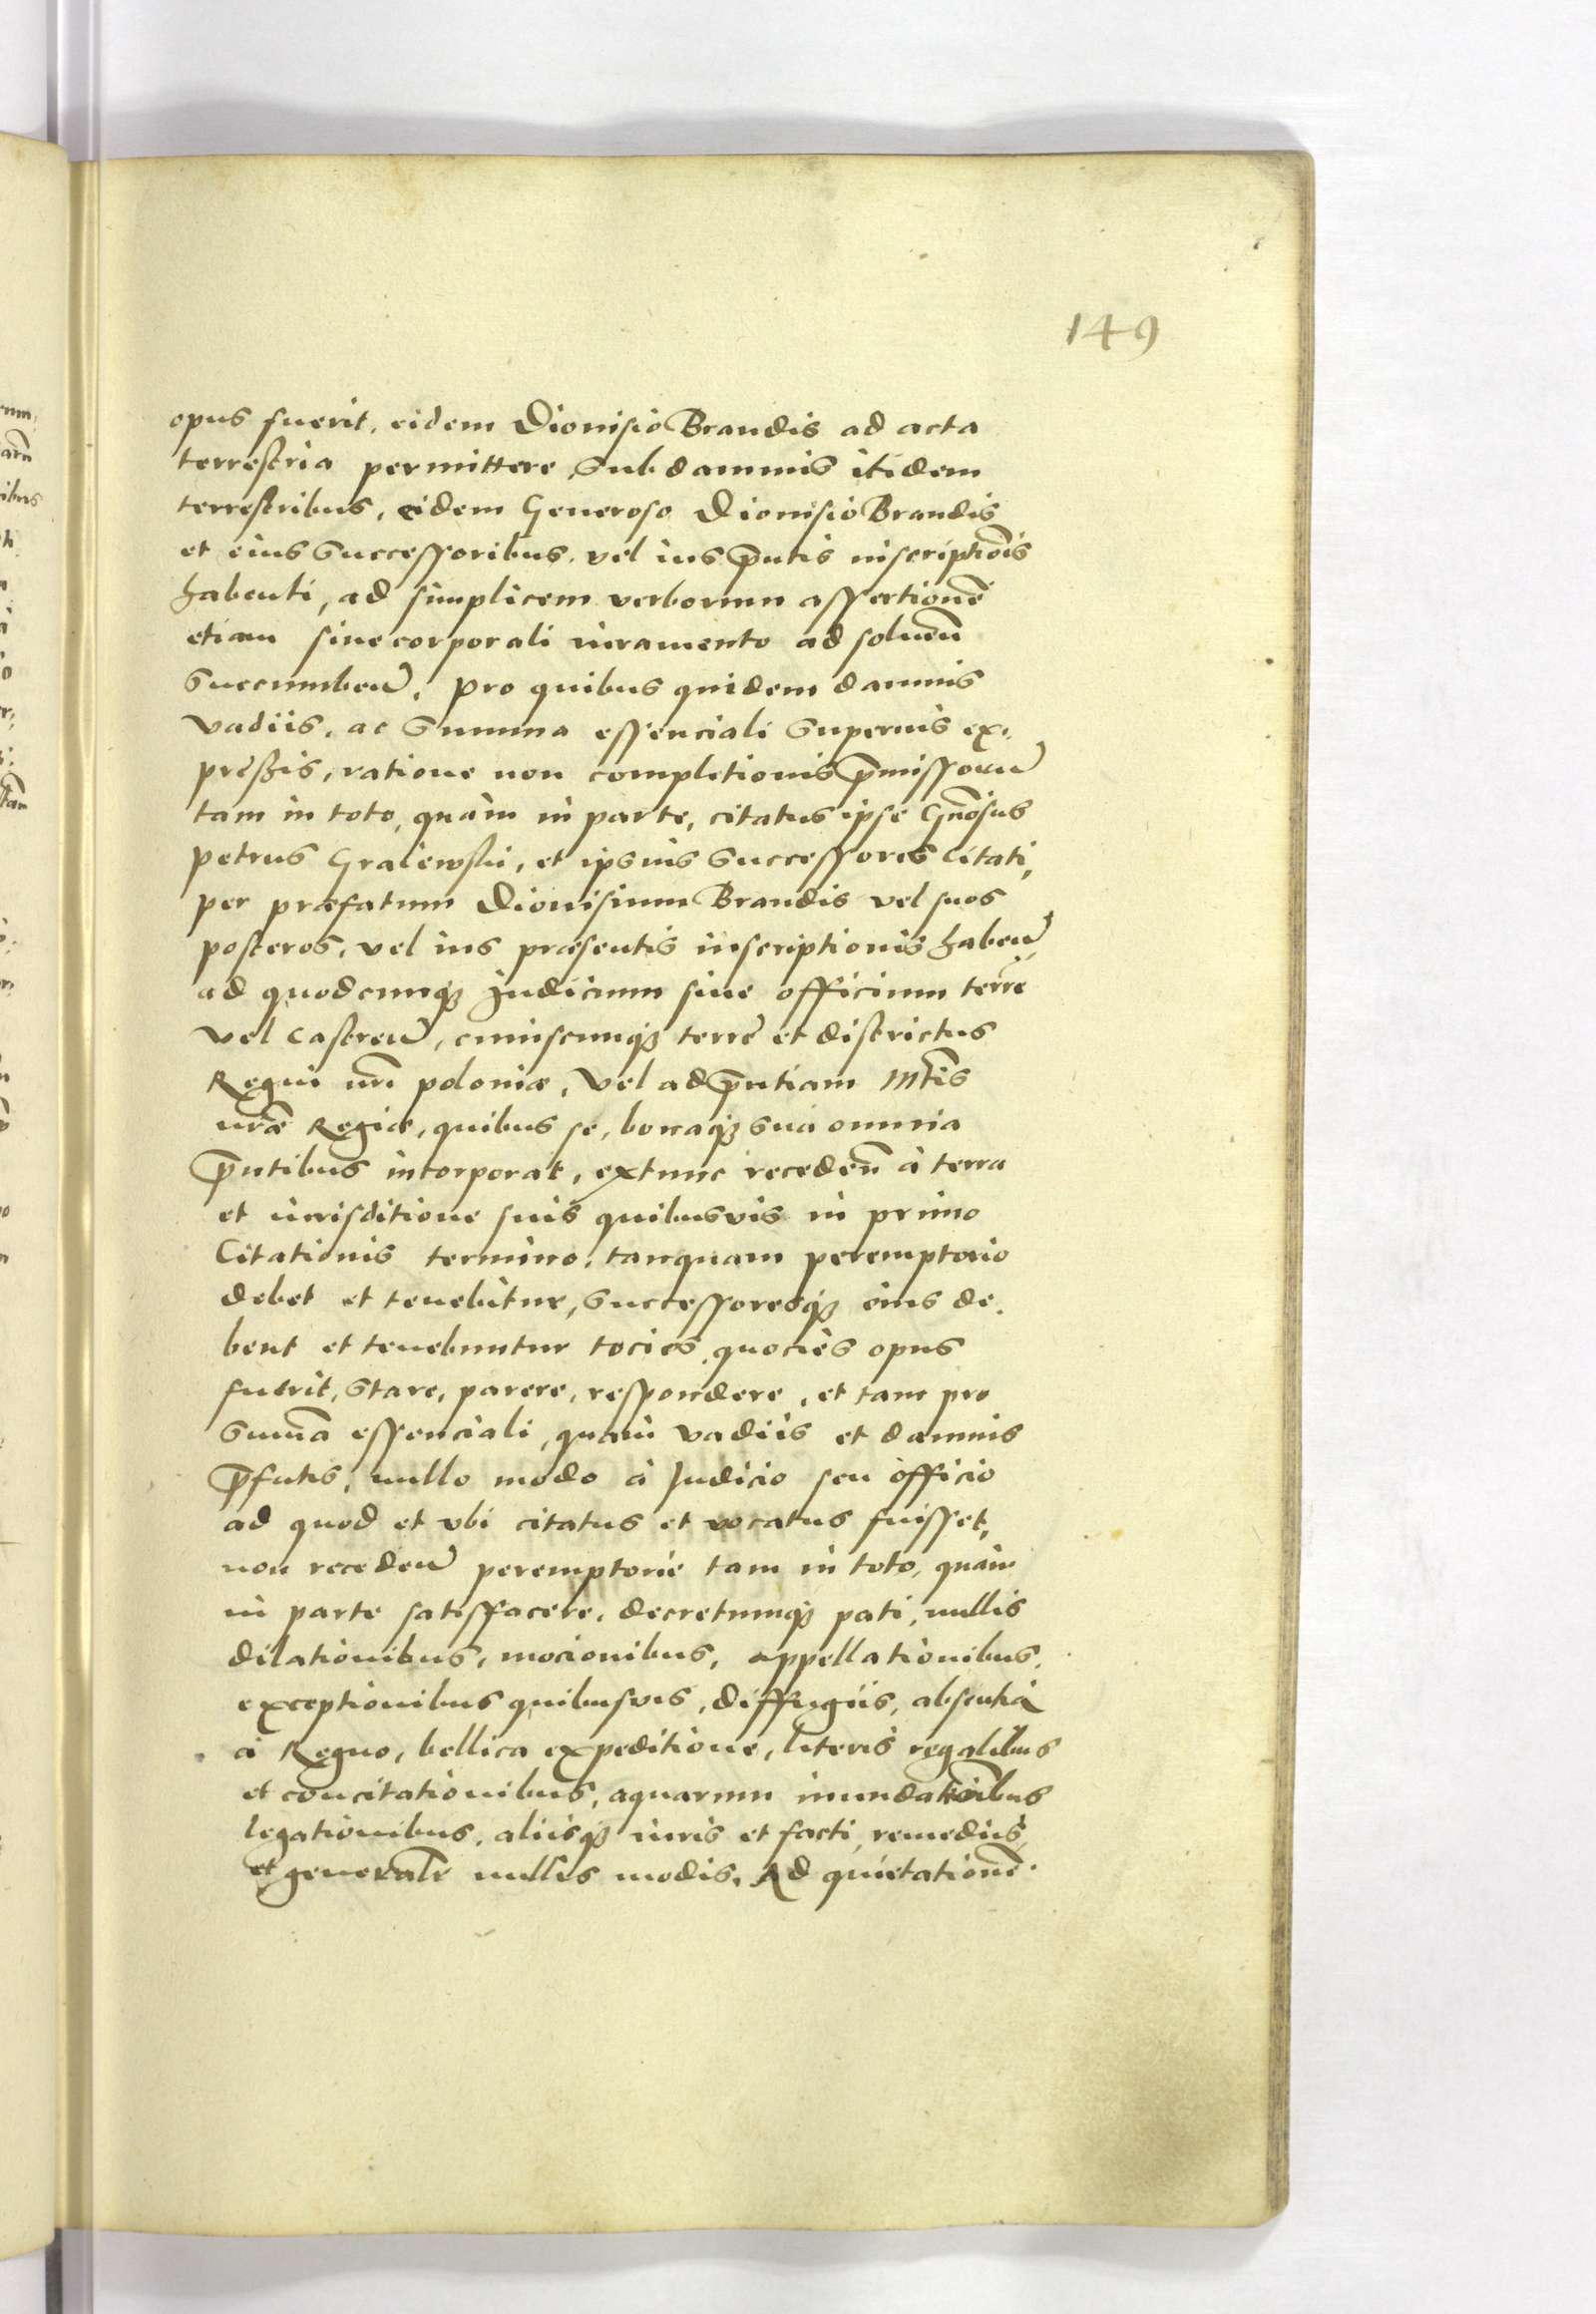 149
opus fuerit, eidem Dionisio Brandis ad acta
terrestria permittere, sub damnis itidem
terrestribus, eidem Generoso Dionisio Brandis
et eius Successoribus, vel ius p̄ntis inscriptiōis
habenti, ad simplicem verborum assertionē
etiam sine corporali iuramento ad soluen̄
Succumben̄, pro quibus quidem damnis
vadiis, ac Summa essenciali Superius ex,
preßis, ratione non completionis p̄missorum
tam in toto, quàm in parte, citatus ipse Gn̄osus
petrus Graiewski, et ipsius Successores Citati,
per præfatum Dionisium Brandis vel suos
posteros, vel ius præsentis inscriptionis haben̄,
ad quodcunq3 Judicium siue officium terrē
vel Castren̄, cuiuscunq3 terrē et districtus
Regni nr̄i poloniæ, Vel ad p̄ntiam Mtīs
nr̄æ Regiæ, quibus se, bonaq3 sua omnia
p̄ntibus incorporat, extunc receden̄ à terra
et iurisditione suis quibusvis in primo
Citationis termino, tanquam peremptorio
debet et tenebitur, Successoresq3 eius de,
bent et tenebuntur tocies, quocies opus
fuerit, Stare, parere, respondere, et tam pro
Sum̄a essenciali, quàm vadiis et damnis
p̄fatis, nullo modo à Judicio seu officio
ad quod et vbi citatus et vocatus fuisset,
non receden̄ peremptorie tam in toto, quàm
in parte satisfacere, decretumq3 pati, nullis
dilationibus, mocionibus, appellationibus,
exceptionibus quibusvis, diffugiis, absentia
à Regno, bellica expeditione, literis regalibus
et concitationibus, aquarum inundatiōibus
legationibus, aliisq3 iuris et facti, remediis,
et generalr̄ nullis modis, Ad quietationē